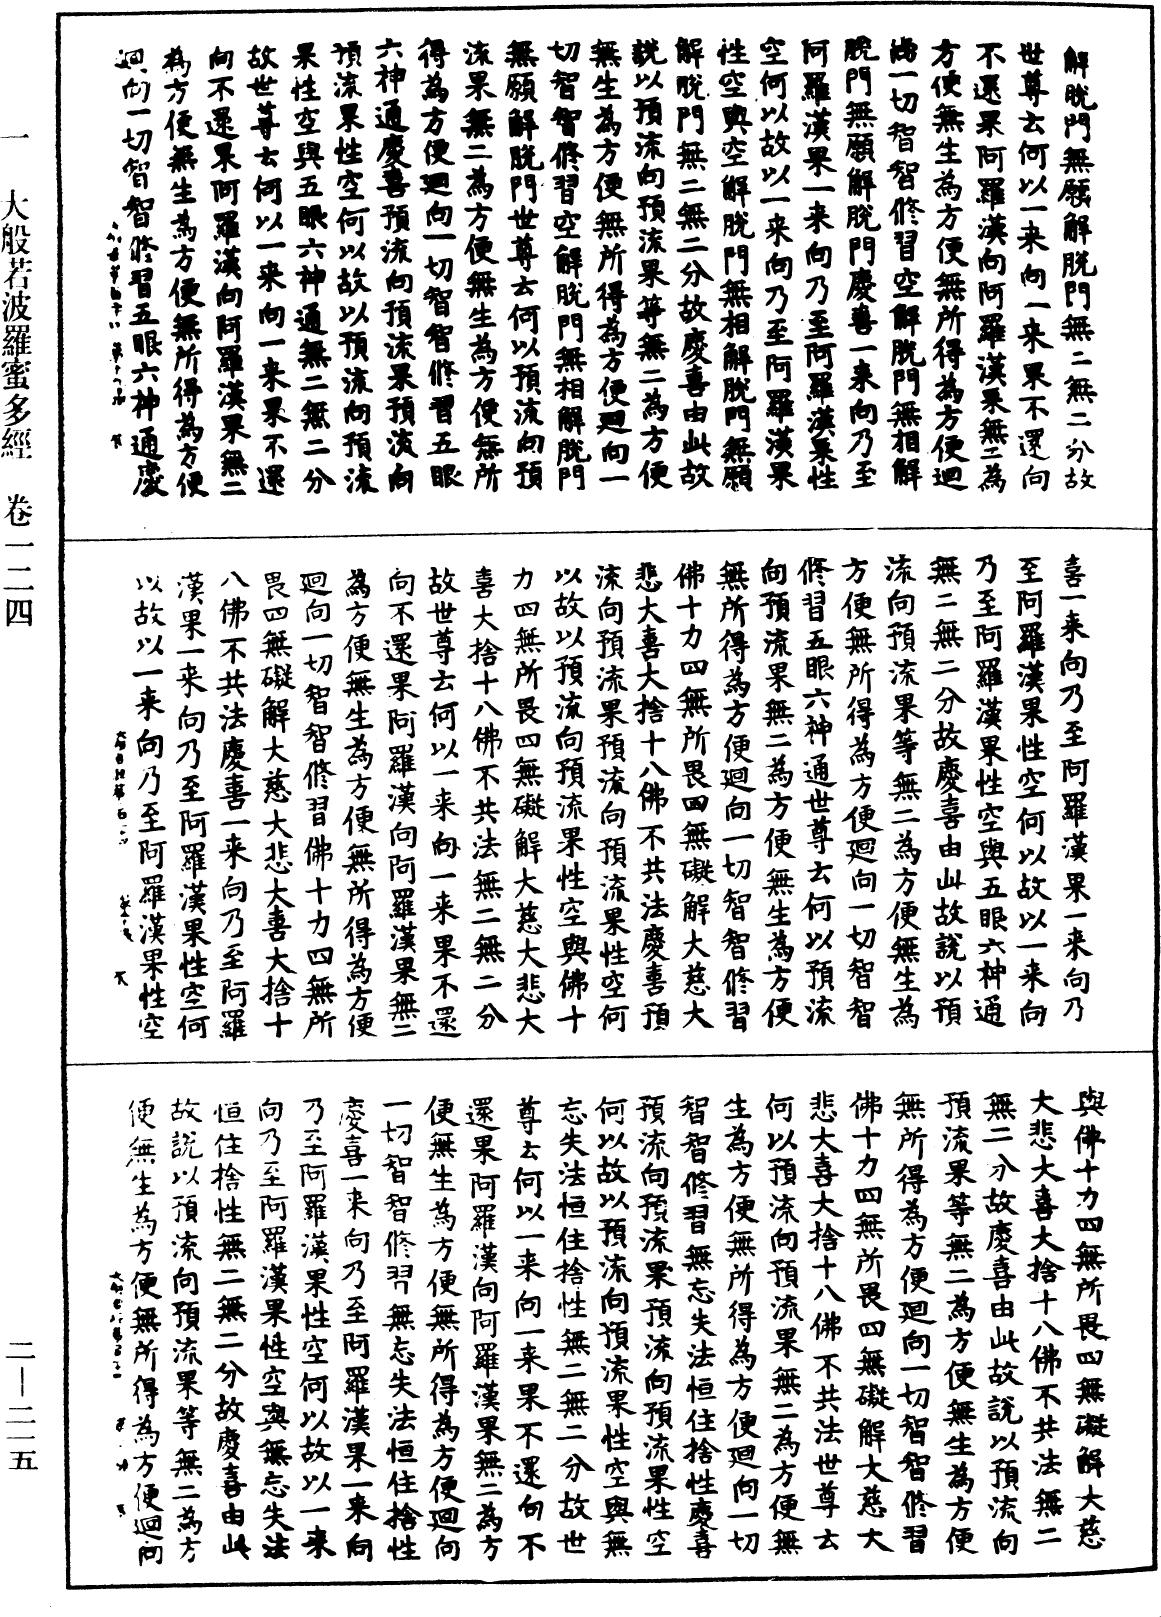 解脫門無願解脫門無二無二分故
世尊云何以一来向一来果不還向
不還果阿羅漢向阿羅漢果無二為
方便無生為方便無所得為方便迴
向一切智智修習空解脫門無相解
脫門無願解脫門慶喜一来向乃至
阿羅漢果一来向乃至阿羅漢果性
空何以故以一来向乃至阿羅漢果
性空與空解脫門無相解脫門無願
解脫門無二無二分故慶喜由此故
說以預流向預流果等無二為方便
無生為方便無所得為方便迴向一
切智智修習空解脫門無相解脫門
無願解脫門世尊云何以預流向預
流果無二為方便無生為方便無所
得為方便迴向一切智智修習五眼
六神通慶喜預流向預流果預流向
預流果性空何以故以預流向預流
果性空與五眼六神通無二無二分
故世尊云何以一来向一来果不還
向不還果阿羅漢向阿羅漢果無二
為方便無生為方便無所得為方便
迴向一切智智修習五眼六神通慶
喜一来向乃至阿羅漢果一来向乃
至阿羅漢果性空何以故以一来向
乃至阿羅漢果性空與五眼六神通
無二無二分故慶喜由此故說以預
流向預流果等無二為方便無生為
方便無所得為方便迴向一切智智
修習五眼六神通世尊云何以預流
向預流果無二為方便無生為方便
無所得為方便迴向一切智智修習
佛十力四無所畏四無礙解大慈大
悲大喜大捨十八佛不共法慶喜預
流向預流果預流向預流果性空何
以故以預流向預流果性空與佛十
力四無所畏四無礙解大慈大悲大
喜大捨十八佛不共法無二無二分
故世尊云何以一来向一来果不還
向不還果阿羅漢向阿羅漢果無二
為方便無生為方便無所得為方便
迴向一切智智修習佛十力四無所
畏四無礙解大慈大悲大喜大捨十
八佛不共法慶喜一来向乃至阿羅
漢果一来向乃至阿羅漢果性空何
以故以一来向乃至阿羅漢果性空
與佛十力四無所畏四無礙解大慈
大悲大喜大捨十八佛不共法無二
無二分故慶喜由此故說以預流向
預流果等無二為方便無生為方便
無所得為方便迴向一切智智修習
佛十力四無所畏四無礙解大慈大
悲大喜大捨十八佛不共法世尊云
何以預流向預流果無二為方便無
生為方便無所得為方便迴向一切
智智修習無忘失法恒住捨性慶喜
預流向預流果預流向預流果性空
何以故以預流向預流果性空與無
忘失法恒住捨性無二無二分故世
尊云何以一来向一来果不還向不
還果阿羅漢向阿羅漢果無二為方
便無生為方便無所得為方便迴向
一切智智修習無忘失法恒住捨性
慶喜一来向乃至阿羅漢果一来向
乃至阿羅漢果性空何以故以一来
向乃至阿羅漢果性空與無忘失法
恒住捨性無二無二分故慶喜由此
故說以預流向預流果等無二為方
便無生為方便無所得為方便迴向
一 大般若波羅蜜多經 卷一二四 二—二一五